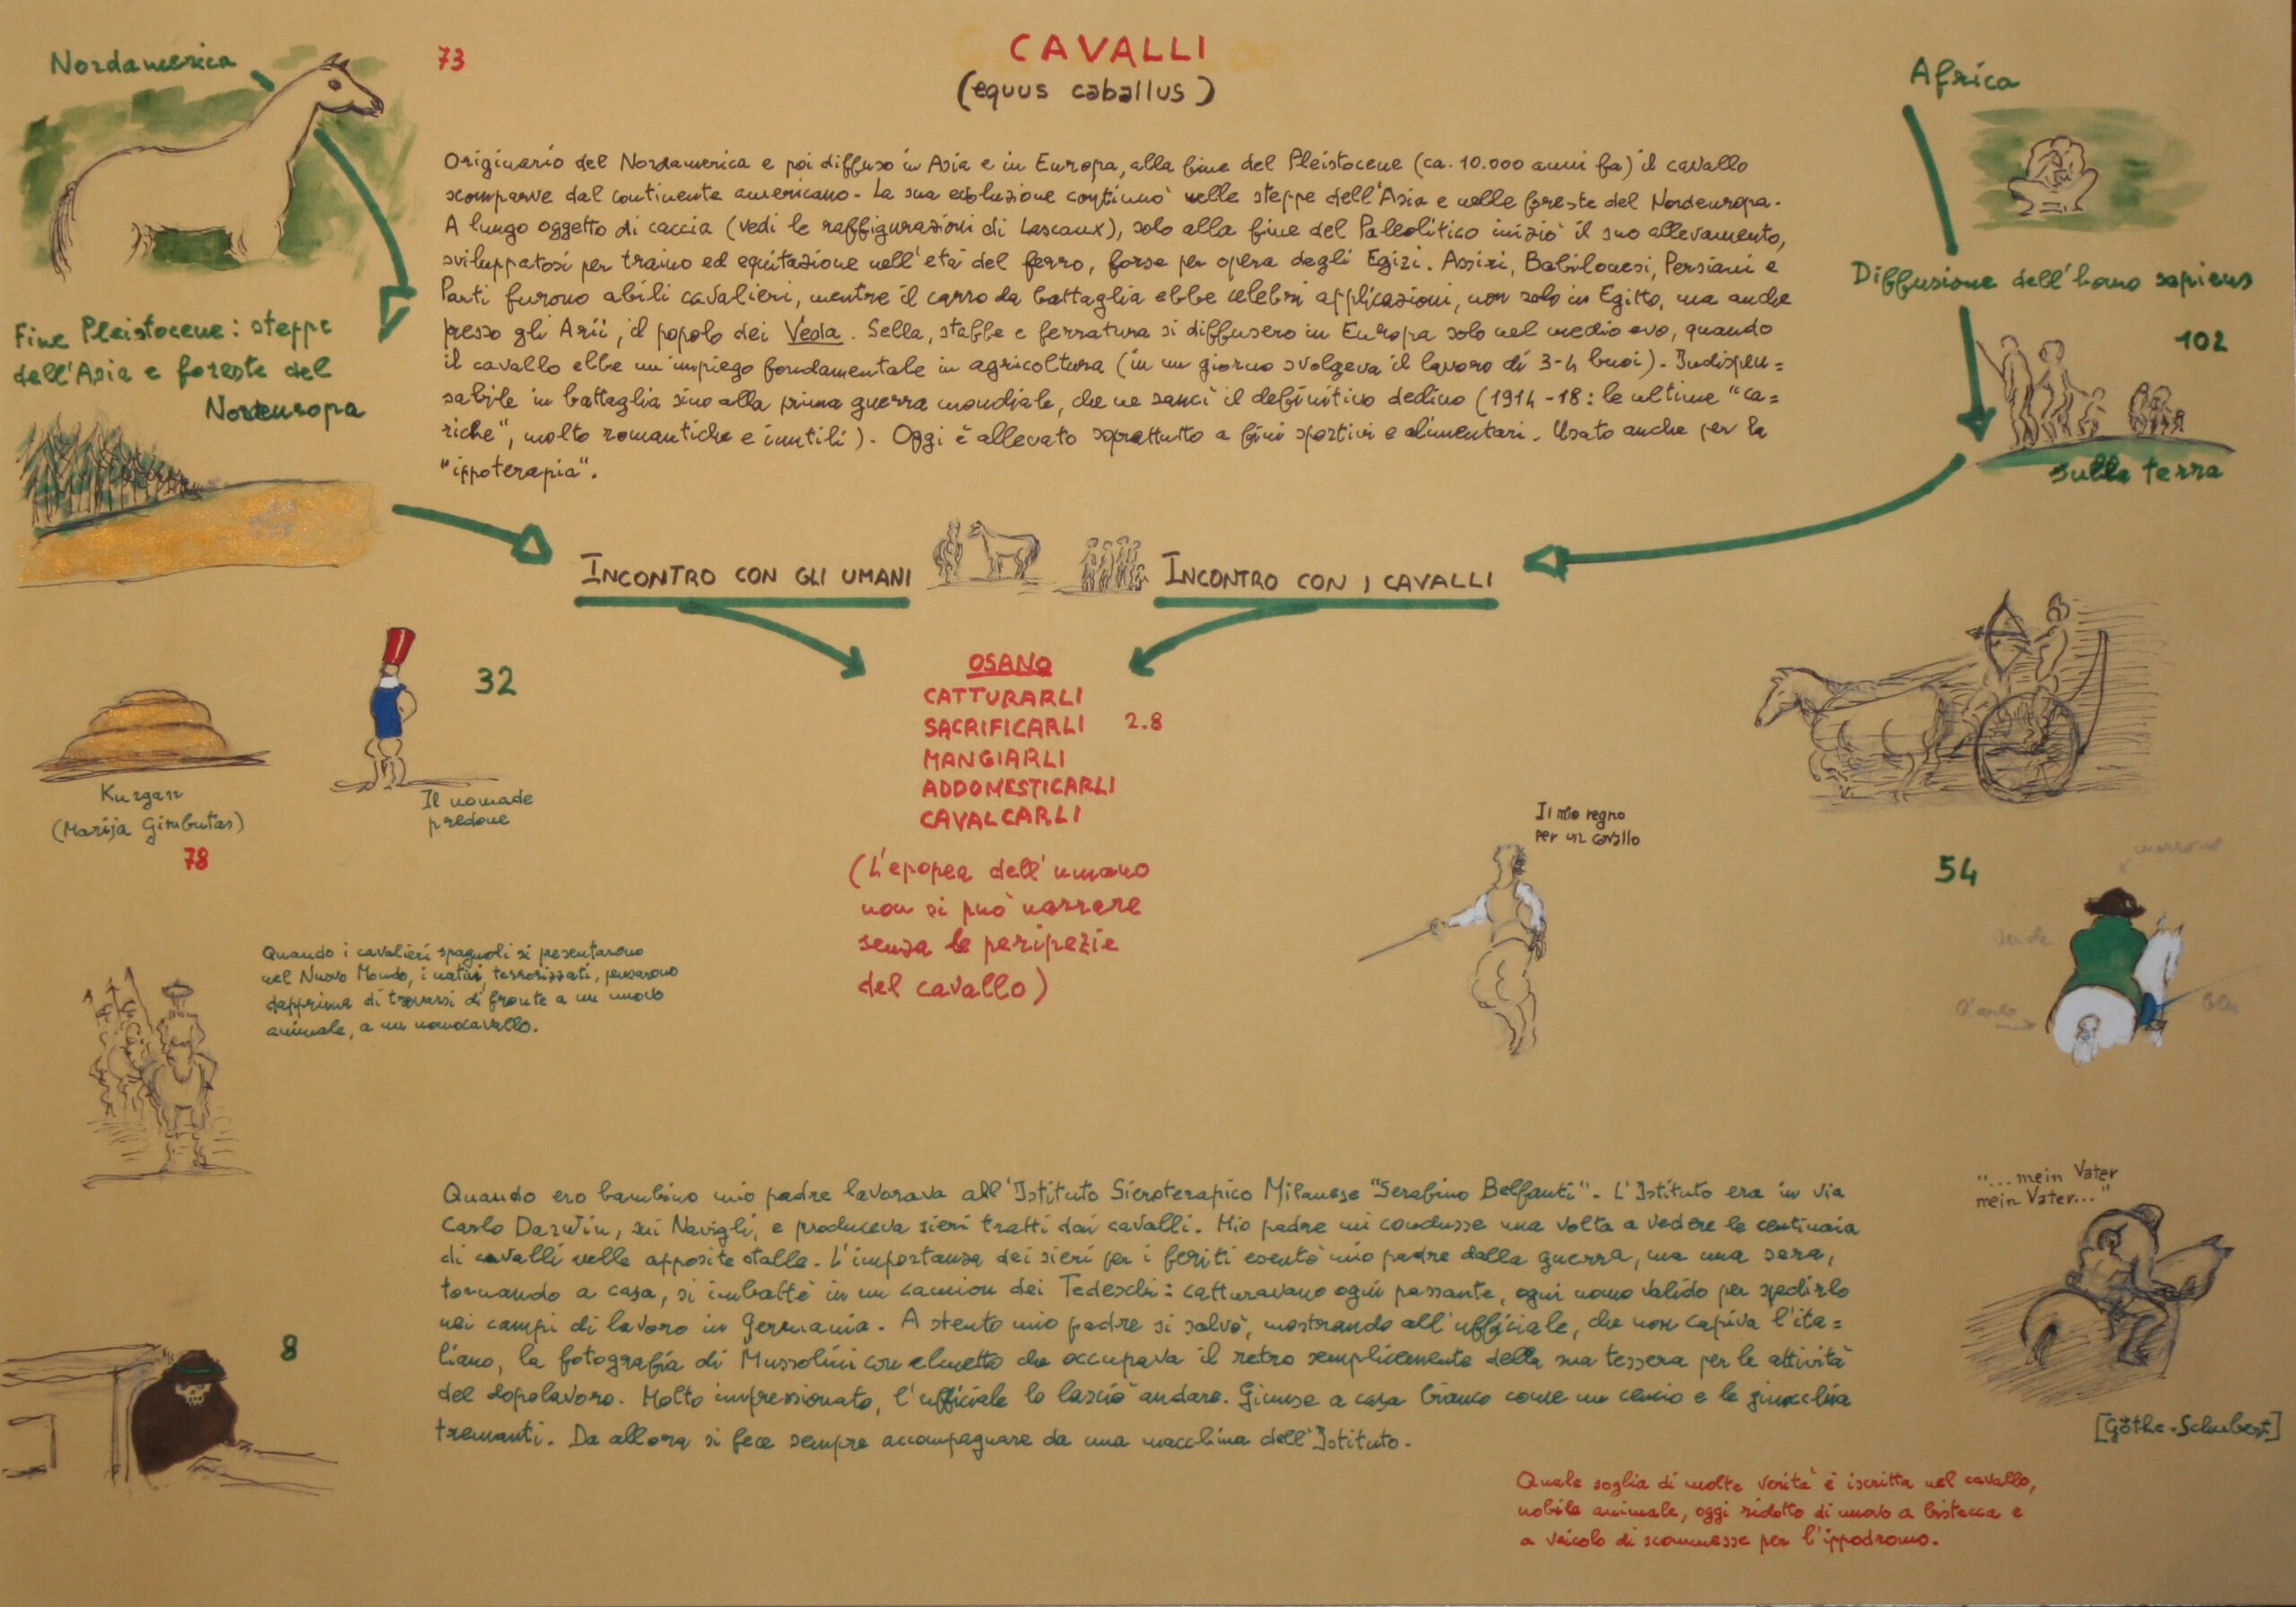 Nordamerica
73
CAVALLI
(equus caballus)
Africa
Originario del Nordamerica e poi diffuso in Asia e in Europa, alla fine del Pleistocene (ca. 10.000 anni fa) il cavallo
scomparve dal continente americano. La sua evoluzione continuò nelle steppe dell'Asia e nelle foreste del Nordeuropa.
A lungo oggetto di caccia (vedi le raffigurazioni di Lascaux), solo alla fine del Paleolitico iniziò il suo allevamento,
sviluppatosi per traino ed equitazione nell'età del ferro, forse per opera degli Egizi. Assiri, Babilonesi, Persiani e
Parti furono abili cavalieri, mentre il carro da battaglia ebbe celebri applicazioni, non solo in Egitto, ma anche
presso gli Arii, il popolo dei Veda. Sella, staffe e ferratura si diffusero in Europa solo nel medio evo, quando
il cavallo ebbe un impiego fondamentale in agricoltura (in un giorno svolgeva il lavoro di 3-4 buoi). Indispen=
sabile in battaglia sino alla prima guerra mondiale, che ne sancì il definitivo declino (1914-18: le ultime "ca=
riche", molto romantiche e inutili). Oggi è allevato soprattutto a fini sportivi e alimentari. Usato anche per la
"ippoterapia".
Diffusione dell'homo sapiens
102
sulla terra
Fine Pleistocene: steppe
dell'Asia e foreste del
Nordeuropa
INCONTRO CON GLI UMANI
INCONTRO CON I CAVALLI
OSANO
CATTURARLI
SACRIFICARLI 2.8
MANGIARLI
ADDOMESTICARLI
CAVALCARLI
(L'epopea dell'umano
non si può narrare
senza le peripezie
del cavallo)
32
Kurgan
(Marija Gimbutas)
78
Il nomade
predone
Il mio regno
per un cavallo
54
marrone
verde
blu
Quando i cavalieri spagnoli si presentarono
nel Nuovo Mondo, i nativi, terrorizzati, pensarono
dapprima di trovarsi di fronte a un nuovo
animale, a un uomocavallo.
Quando ero bambino mio padre lavorava all'Istituto Sieroterapico Milanese "Serafino Belfanti". L'Istituto era in via
Carlo Darwin, sui Navigli, e produceva sieri tratti dai cavalli. Mio padre mi condusse una volta a vedere le centinaia
di cavalli nelle apposite stalle. L'importanza dei sieri per i feriti esentò mio padre dalla guerra, ma una sera,
tornando a casa, si imbatté in un camion dei Tedeschi: catturavano ogni passante, ogni uomo valido per spedirlo
nei campi di lavoro in Germania. A stento mio padre si salvò, mostrando all'ufficiale, che non capiva l'ita=
liano, la fotografia di Mussolini con elmetto che occupava il retro semplicemente della sua tessera per le attività
del dopolavoro. Molto impressionato, l'ufficiale lo lasciò andare. Giunse a casa bianco come un cencio e le ginocchia
tremanti. Da allora si fece sempre accompagnare da una macchina dell'Istituto.
8
"...mein Vater
mein Vater..."
[Göthe-Schubert]
Quale soglia di molte verità è iscritta nel cavallo,
nobile animale, oggi ridotto di nuovo a bistecca e
a veicolo di scommesse per l'ippodromo.